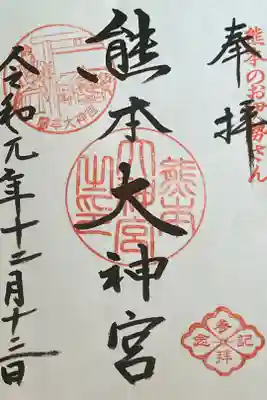 奉拝
熊本のお伊勢さん
熊本大神宮
熊本大神宮之印
令和元年十二月十三日
参拝記念